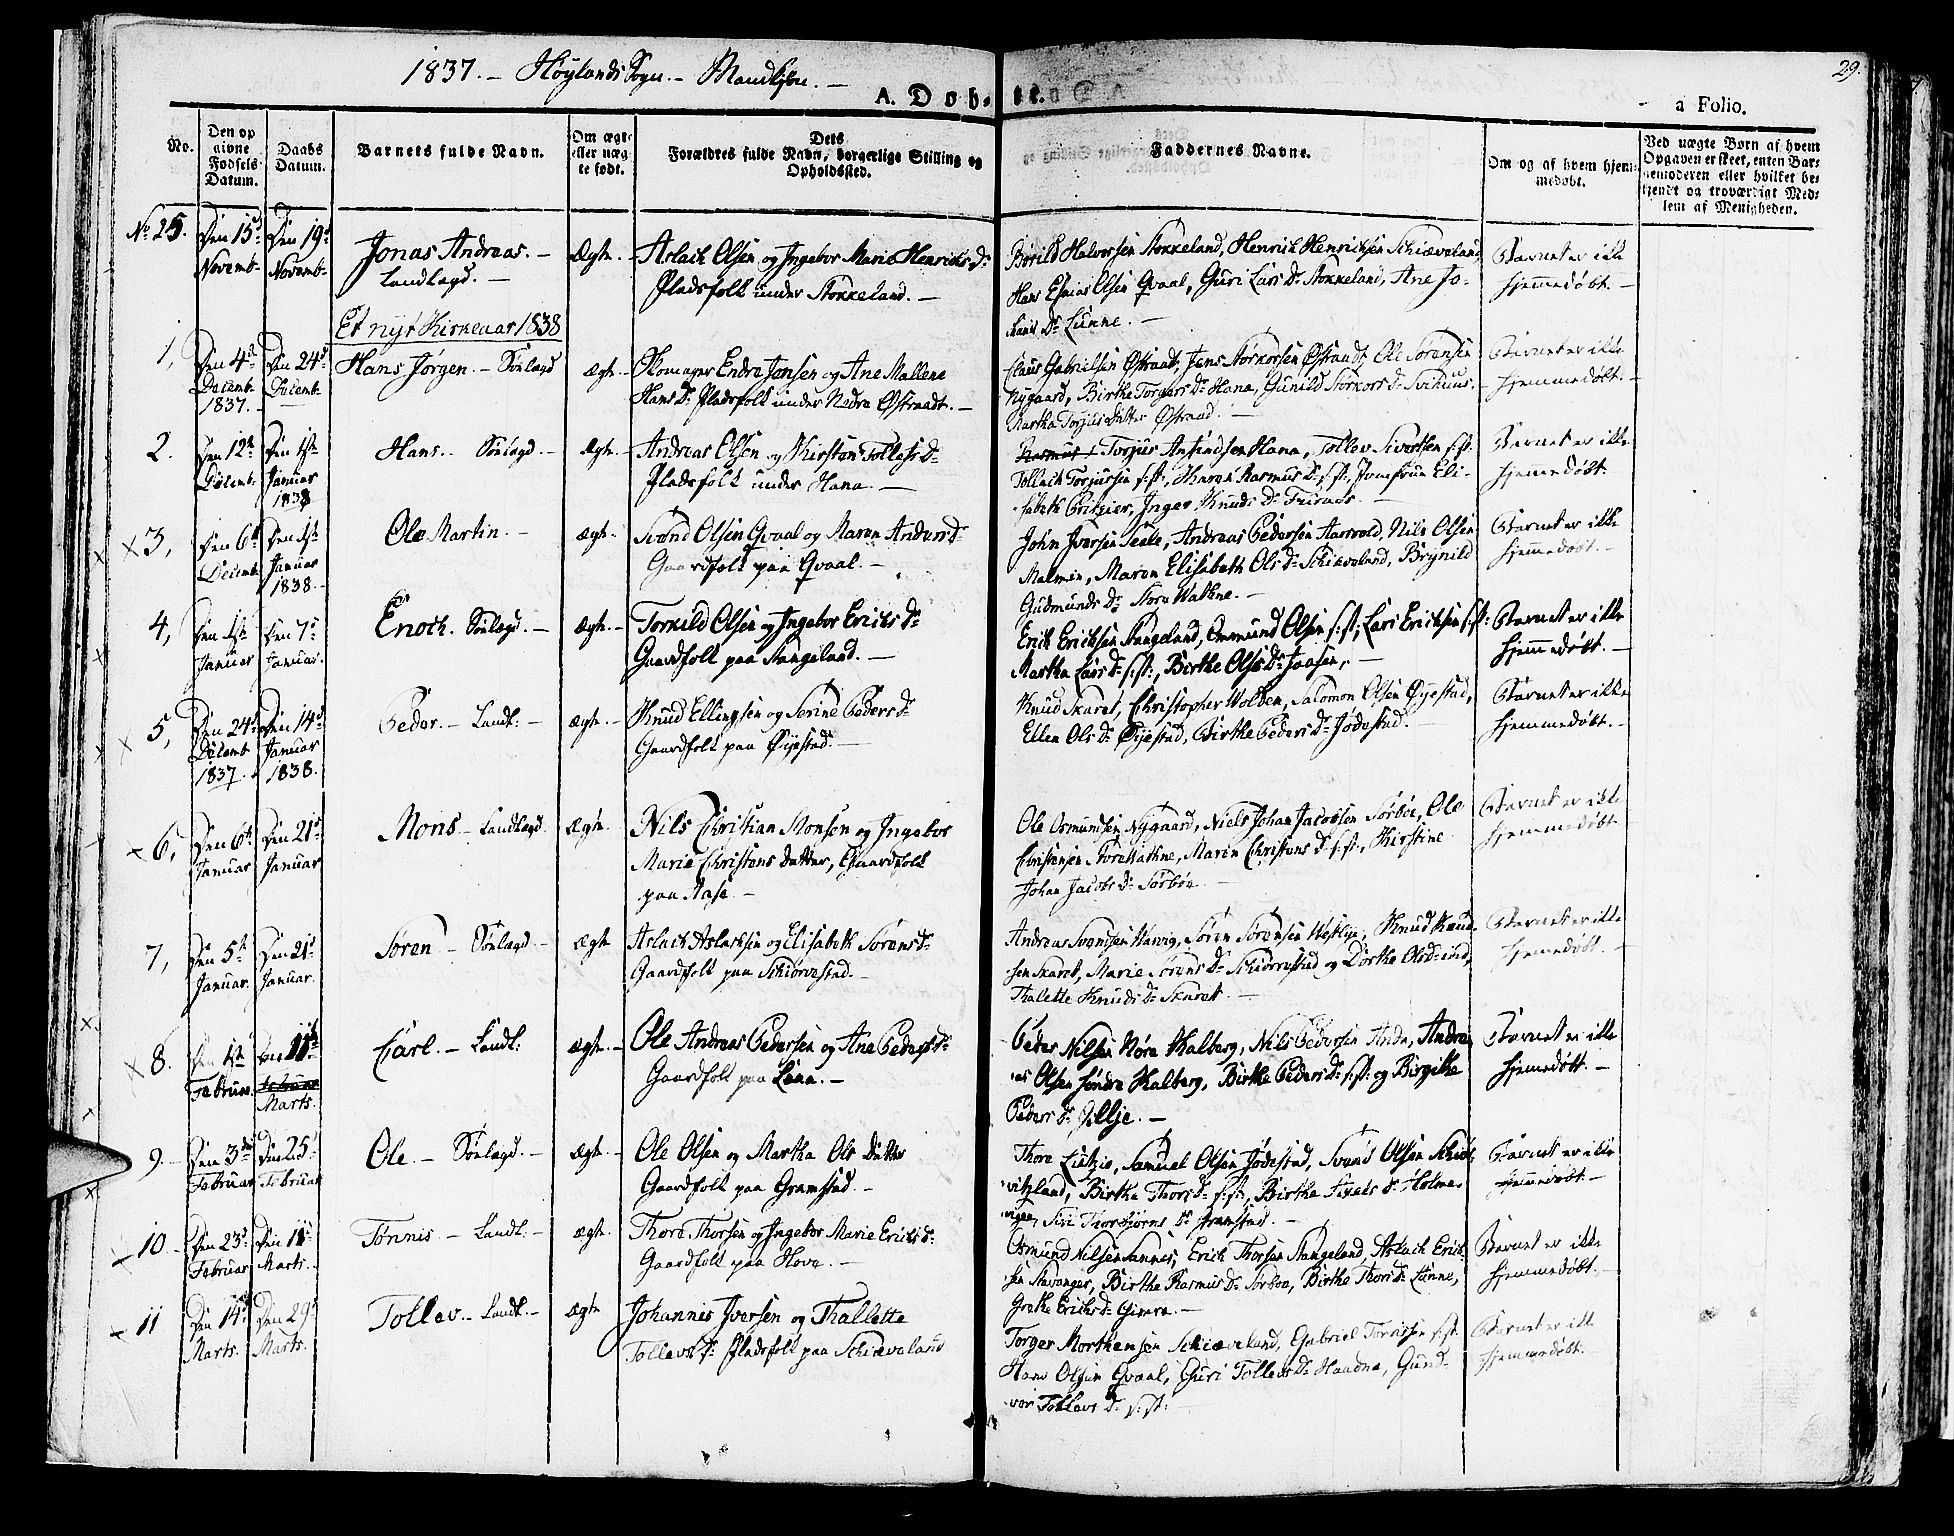 1837. - Höylands Sogn. - Mandkjön. -
29.
A. Döb- te.
a Folio.
No.
Den op
givne
Födsels
Datum.
Daabs
Datum.
Barnets fulde Navn.
Om ægte
eller uæg
te födt.
Dets
Forældres fulde Navn, borgerlige Stilling og
Opholdssted.
Faddernes Navne.
Om og af hvem hjem-
medöbt.
Ved uægte Børn af hvem
Opgaven er skeet, enten Bar-
nemoderen eller hvilket be-
kjendt og troværdigt Med-
lem af Menigheden.
No 25. Den 15d Novemb. Den 19d Novemb.
Jonas Andreas. -
Landlagd. -
Ægte. -
Aslach Olsen og Ingebor Marie Henrichs Dr
Pladsfolk under Stokkeland. -
Børild Halvorsen Stokkeland, Henrich Henrichsen Schiæveland
Hans Esaias Olsen Qvaal, Guri Lars Dr Stokkeland, Ane Jo-
hans Dr Lunne. -
Barnet er ikke
hjemmedöbt. -
Et nyt Kirkeaar 1838
1, Den 4de Decemb. 1837. - Den 24d Decemb.
Hans Jørgen. - Sönlagd
ægte. -
Skomager Endre Jensen og Ane Mallene
Hans Dr Pladsfolk under Nedre Østraadt. -
Claus Gabrielsen Østraat, Jens Storkorsen Østraat, Ole Sörensen
Nygaard, Birthe Torgers Dr Hana, Gunild Storkors Dr Svihuus. -
Martha Torjus Datter Østraad. -
Barnet er ikke
hjemmedöbt. -
2. Den 12te Decemb. Den 1ste Januar 1838
Hans. - Sönlagd. -
Ægte. -
Andreas Olsen og Kirsten Tollefs Dr
Pladsfolk under Hana. -
Torjus Anfindsen Hana, Tollev Sivertsen s: st:
Tollach Torjursen s: st:, Karen Rasmus Dr s: st:, Jomfrue Eli-
sabeth Critzier, Inger Knuds Dr -
Barnet er ikke
hjemmedöbt.
3, Den 6te Decemb. Den 1ste Januar 1838. -
Ole Martin. -
ægte. -
Svend Olsen Qvaal og Maren Anders Dr
Gaardfolk paa Qvaal. -
John Iversen Seele, Andreas Pedersen Aarvold, Nils Olsen
Malmin, Maren Elisabeth Ols Dr Schiæveland, Brynild
Gudmunds Dr Store Wathne. -
Barnet er ikke
hjemmedöbt. -
4, Den 1ste Januar Den 7d Januar.
Enoch. Sönlagd. -
ægte. -
Torkild Olsen og Ingebor Erichs Dr
Gaardfolk paa Stangeland. -
Erich Erichsen Stangeland, Ommund Olsen s: st:, Lars Erichsen s: st:
Martha Lars Dr s: st:, Birthe Ols Dr Joasen. -
Barnet er ikke
hjemmedöbt. -
5, Den 24d Decemb 1837. Den 14d Januar 1838.
Peder. - Landl: -
ægte -
Knud Ellingsen og Serine Peders Dr
Gaardfolk paa Øyestad. -
Knud Skaret, Christopher Wolden, Salomon Olsen Øyestad,
Ellen Ols Dr Øyestad, Birthe Peders Dr Jødestad.
Barnet er ikke
hjemmedöbt. -
6, Den 6te Januar Den 21d Januar
Mons - Landlagd.
ægte.
Nils Christian Monsen og Ingebor
Marie Christens Datter, Gaardfolk
paa Aase. -
Ole Osmundsen Nygaard, Niels Johan Jacobsen Sörböe, Ole
Christensen Store Wathne, Maren Christens Dr s: st:, Kirstine
Johan Jacobs Dr Sörböe. -
Barnet er ikke
hjemmedöbt
7, Den 5te Januar. Den 21d Januar.
Sören - Sönlagd -
ægte
Aslach Aslachsen og Elisabeth Sörens Dr
Gaardfolk paa Schiörrestad. -
Andreas Svendsen Warvig, Sören Sörensen Westlye, Knud Knud-
sen Skaret, Marie Sörens Dr Schiörrestad og Dorthe Ols Dr ibid,
Thalette Knuds Dr Skaret. -
Barnet er ikke
hjemmedöbt. -
8. Den 1ste Februar Den 11te Februar Marts.
Carl. - Landl:
ægte. -
Ole Andreas Pedersen og Ane Peders Dr
Gaardfolk paa Lena. -
Peder Nilsen Nöre Kalberg, Nils Pedersen Anda, Andre-
as Olsen Söndre Kalberg, Birthe Peders Dr s: st: og Birgithe
Peders Dr Gillje. -
Barnet er ikke
hjemmedöbt. -
9. - Den 3die Februar Den 25d Februar
Ole. - Sönlagd. -
ægte. -
Ole Olsen og Martha Ols Datter
Gaardfolk paa Gramstad. -
Thore Lutzie, Samuel Olsen Jødestad, Svend Olsen Schiæ-
vitzland, Birthe Thors Dr s: st:, Birthe Dr Holme-
Siri Thorbjörns Dr Gramstad. -
Barnet er ikke
hjemmedöbt. -
10 - Den 23d Februar Den 18d Marts.
Tönnis - Landl. -
ægte.
Thore Thorsen og Ingebor Marie Erichs Dr
Gaardfolk paa Hove. -
Osmund Nilsen Sannes, Erich Thorsen Stangeland, Aslach Erich-
sen Stavanger, Birthe Rasmus Dr Sörboe, Birthe Thors Dr Lunne,
Grethe Erichs Dr Gimre. -
Barnet er ikke
hjemmedöbt. -
11 Den 14d Marts. Den 29d Marts.
Tollev. - Landl. -
ægte
Johannes Iversen og Thallette
Tollevs Dr Pladsfolk paa Schiæveland
Torger Morthensen Schiæveland, Gabriel Tönnesen s: st:
Hans Olsen Qvaal, Guri Tollevs Dr Haadne, Gund-
vor Tollevs Dr s: st:
Barnet er ikke
hjemmedöbt. -